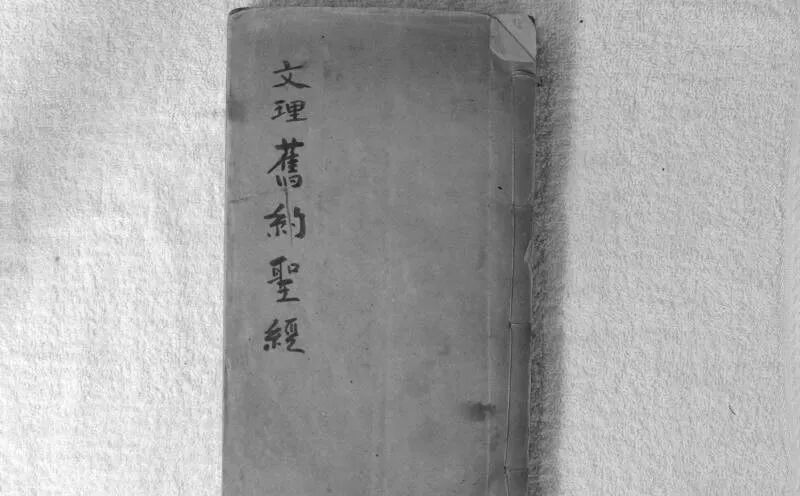 文理舊約聖經